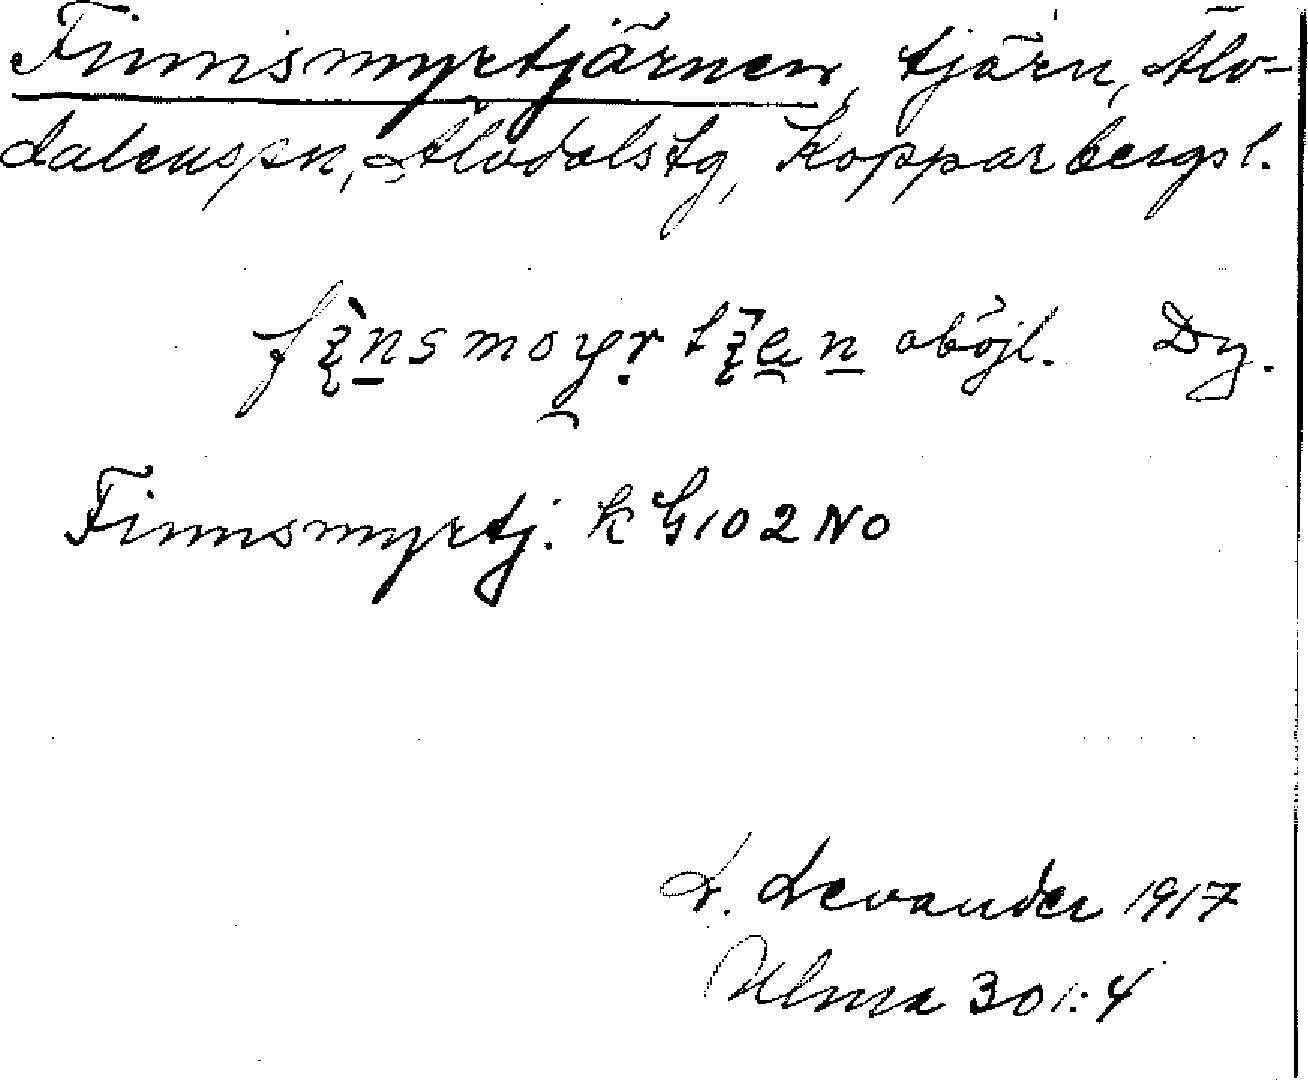 Finnsmyrtjärnen, tjärn, Älv-
dalens sn, Älvdals tg, Kopparbergs l.
oböjl. Dy.
Finnsmyrtj. k G 102 NO
L. Levander 1917
Ulma 301:4